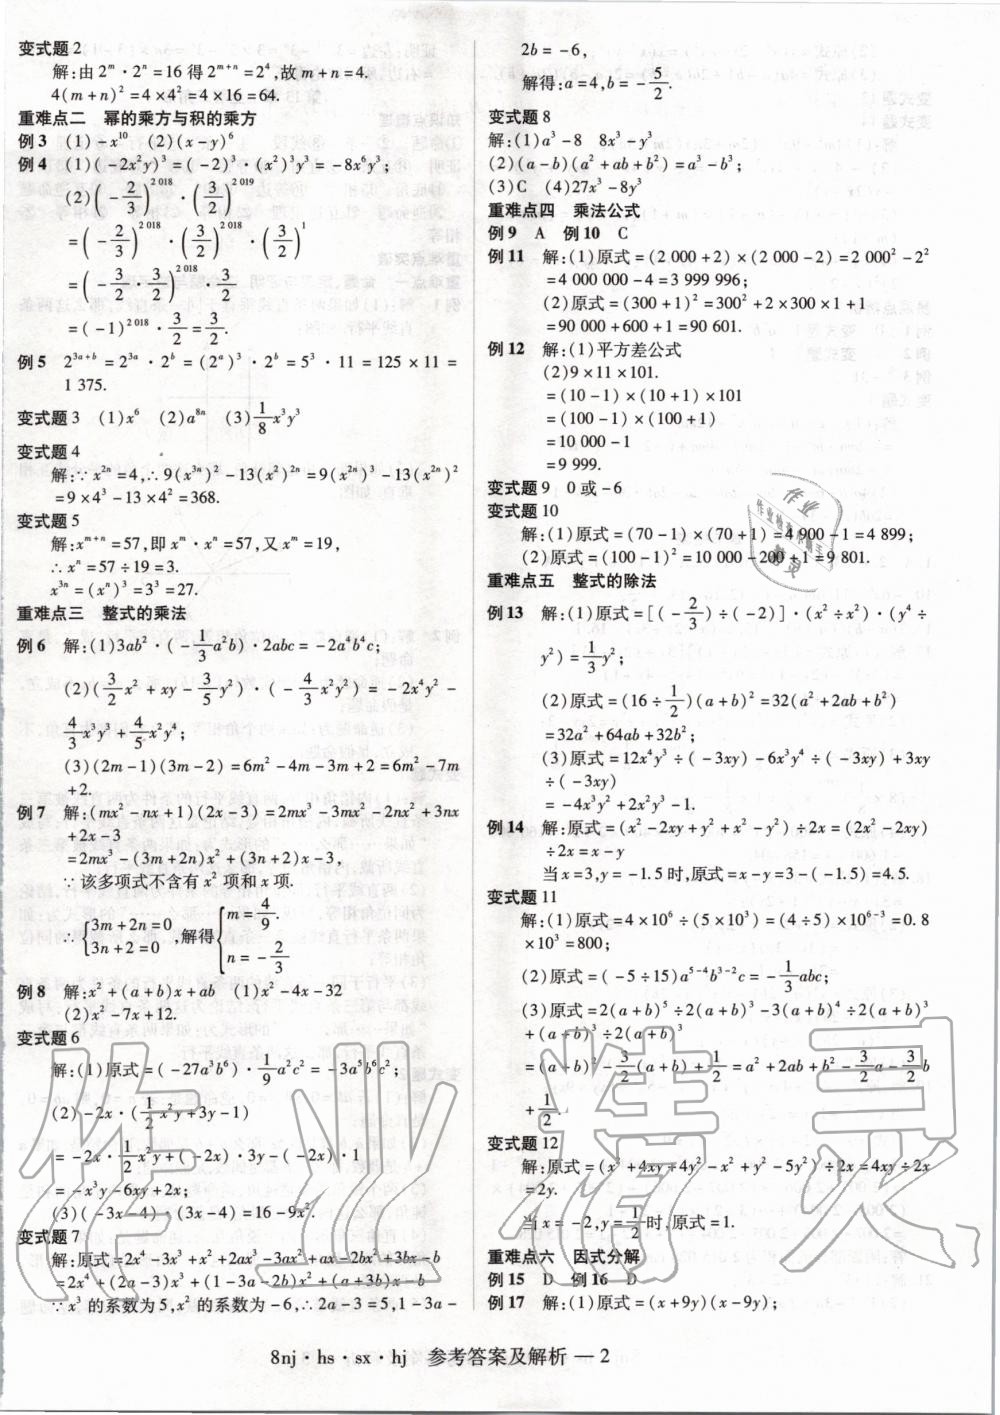 变式题2
解:由2^m·2^n=16得2^{m+n}=2^4,故m+n=4.
4(m+n)^2=4×4^2=4×16=64.
重难点二 幂的乘方与积的乘方
例3 (1)-x^{10} (2)(x-y)^6
例4 (1)(-2x^2y)^3=(-2)^3·(x^2)^3y^3=-8x^6y^3;
(2)(-2/3)^{2 018}·(3/2)^{2 019}
=(-2/3)^{2 018}·(3/2)^{2 018}·(3/2)^1
=(-2/3·3/2)^{2 018}·3/2
=(-1)^{2 018}·3/2=3/2.
例5 2^{3a+b}=2^{3a}·2^b=(2^a)^3·2^b=5^3·11=125×11=
1 375.
变式题3 (1)x^6 (2)a^{8n} (3)1/8x^3y^3
变式题4
解:∵x^{2n}=4,∴9(x^{3n})^2-13(x^2)^{2n}=9(x^{2n})^3-13(x^{2n})^2
=9×4^3-13×4^2=368.
变式题5
解:x^{m+n}=57,即x^m·x^n=57,又x^m=19,
∴x^n=57÷19=3.
x^{3n}=(x^n)^3=3^3=27.
重难点三 整式的乘法
例6 解:(1)3ab^2·(-1/3a^2b)·2abc=-2a^4b^4c;
(2)(3/2x^2+xy-3/5y^2)·(-4/3x^2y^2)=-2x^4y^2-
4/3x^3y^3+4/5x^2y^4;
(3)(2m-1)(3m-2)=6m^2-4m-3m+2=6m^2-7m
+2.
例7 解:(mx^2-nx+1)(2x-3)=2mx^3-3mx^2-2nx^2+3nx
+2x-3
=2mx^3-(3m+2n)x^2+(3n+2)x-3,
∵该多项式不含有x^2项和x项.
∴{3m+2n=0 3n+2=0,解得{m=4/9. n=-2/3
例8 解:x^2+(a+b)x+ab (1)x^2-4x-32
(2)x^2-7x+12.
变式题6
解:(1)原式=(-27a^3b^6)·1/9a^2c^2=-3a^5b^6c^2;
(2)-2x·(1/2x^2y+3y-1)
=-2x·1/2x^2y+(-2x)·3y-(-2x)·1
=-x^3y-6xy+2x;
(3)(-3x-4)·(3x-4)=16-9x^2.
变式题7
解:原式=2x^4-3x^3+x^2+2ax^3-3ax^2+ax-2bx^2+3bx-b
=2x^4+(2a-3)x^3+(1-3a-2b)x^2+(a+3b)x-b
∵x^3的系数为5,x^2的系数为-6,∴2a-3=5,1-3a-
2b=-6,
解得:a=4,b=-5/2.
变式题8
解:(1)a^3-8 8x^3-y^3
(2)(a-b)(a^2+ab+b^2)=a^3-b^3;
(3)C (4)27x^3-8y^3
重难点四 乘法公式
例9 A 例10 C
例11 解:(1)原式=(2 000+2)×(2 000-2)=2 000^2-2^2
=4 000 000-4=3 999 996;
(2)原式=(300+1)^2=300^2+2×300×1+1
=90 000+600+1=90 601.
例12 解:(1)平方差公式
(2)9×11×101.
=(10-1)×(10+1)×101
=(100-1)×(100+1)
=10 000-1
=9 999.
变式题9 0或-6
变式题10
解:(1)原式=(70-1)×(70+1)=4 900-1=4 899;
(2)原式=(100-1)^2=10 000-200+1=9 801.
重难点五 整式的除法
例13 解:(1)原式=[(-2/3)÷(-2)]·(x^2÷x^2)·(y^4÷
y^2)=1/3y^2;
(2)原式=(16÷1/2)(a+b)^2=32(a^2+2ab+b^2)
=32a^2+64ab+32b^2;
(3)原式=12x^4y^3÷(-3xy)-6x^3y^2÷(-3xy)+3xy
÷(-3xy)
=-4x^3y^2+2x^2y-1.
例14 解:原式=(x^2-2xy+y^2+x^2-y^2)÷2x=(2x^2-2xy)
÷2x=x-y
当x=3,y=-1.5时,原式=x-y=3-(-1.5)=4.5.
变式题11
解:(1)原式=4×10^6÷(5×10^3)=(4÷5)×10^{6-3}=0.8
×10^3=800;
(2)原式=(-5÷15)a^{5-4}b^{3-2}c=-1/3abc;
(3)原式=2(a+b)^5÷2(a+b)^3-3(a+b)^4÷2(a+b)^3
+(a+b)^3÷2(a+b)^3
=(a+b)^2-3/2(a+b)+1/2=a^2+2ab+b^2-3/2a-3/2b
+1/2.
变式题12
解:原式=(x^2+4xy+4y^2-x^2+y^2-5y^2)÷2x=4xy÷2x
=2y.
当x=-2,y=1/2时,原式=1.
重难点六 因式分解
例15 D 例16 D
例17 解:(1)原式=(x+9y)(x-9y);
8nj·hs·sx·hj 参考答案及解析 — 2
作业精灵